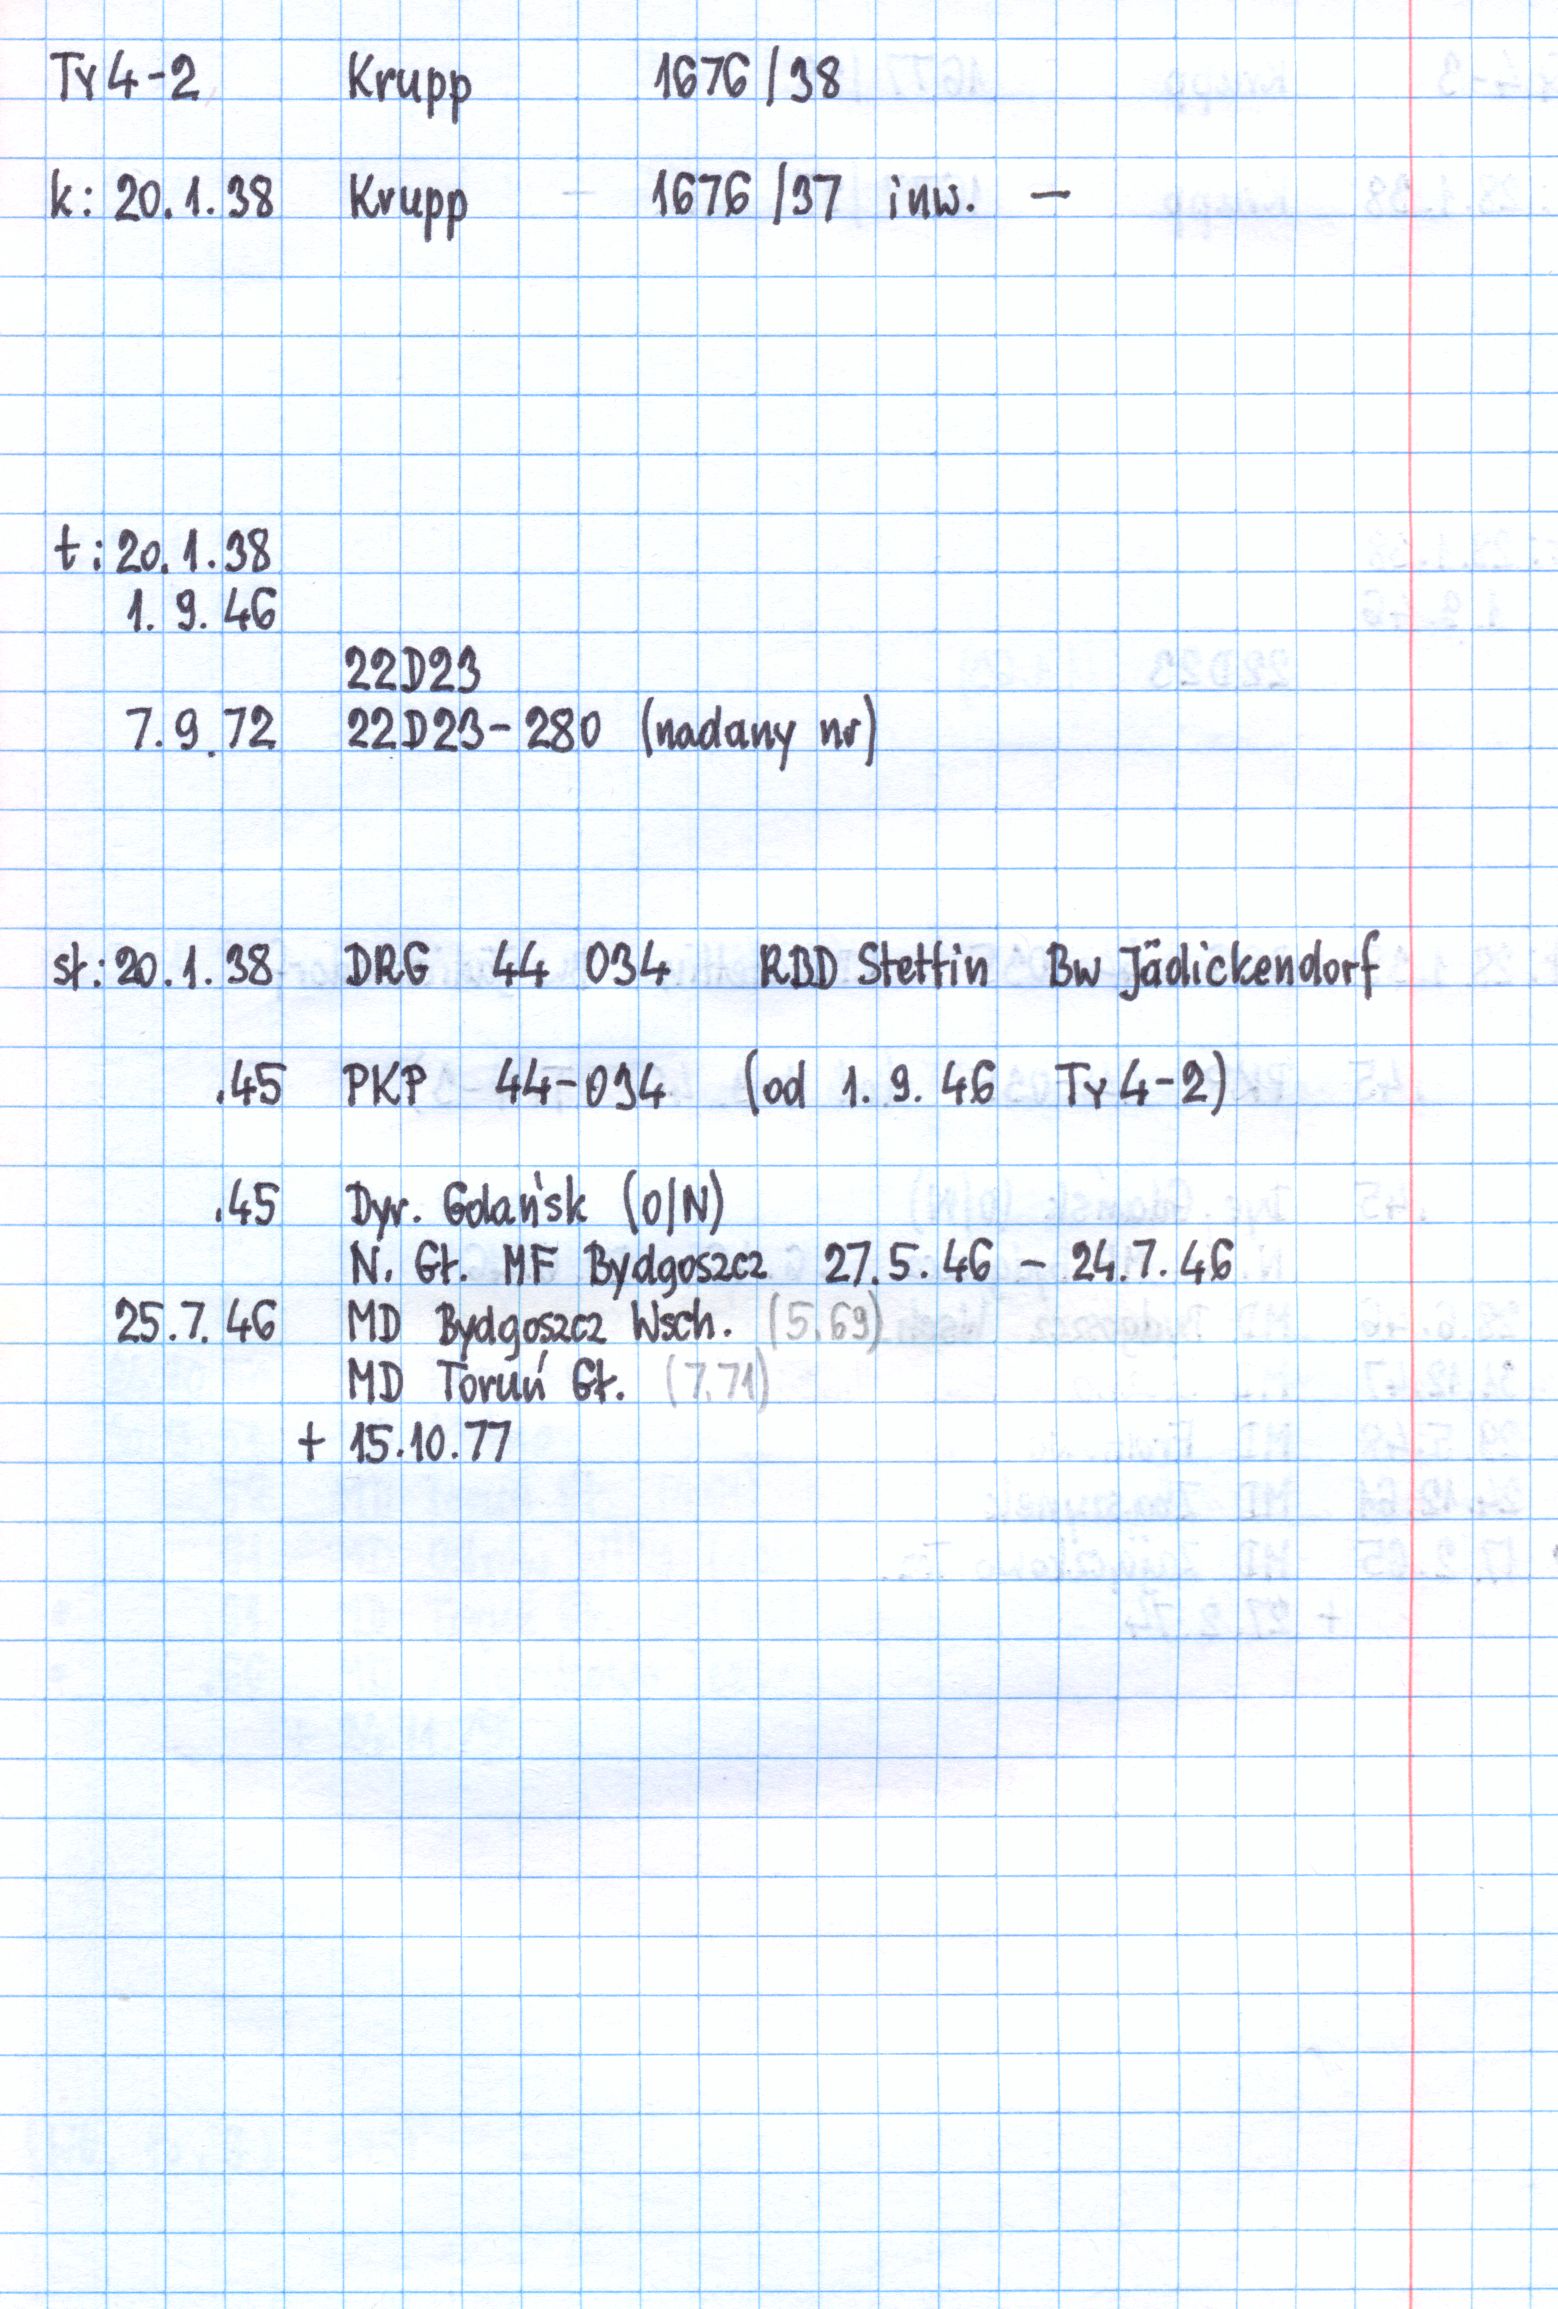 Ty4-2 Krupp 1676/38
k: 20.1.38 Krupp - 1676/37 inw. -
t: 20.1.38
1.9.46
22D23
7.9.72 22D23-280 (nadany nr)
st: 20.1.38 DRG 44 034 RBD Stettin Bw Jädickendorf
.45 PKP 44-034 (od 1.9.46 Ty4-2)
.45 Dyr. Gdańsk (O/N)
N. Gł. MF Bydgoszcz 27.5.46 - 24.7.46
25.7.46 MD Bydgoszcz Wsch. (5.69)
MD Toruń Gł. (7.71)
+ 15.10.77